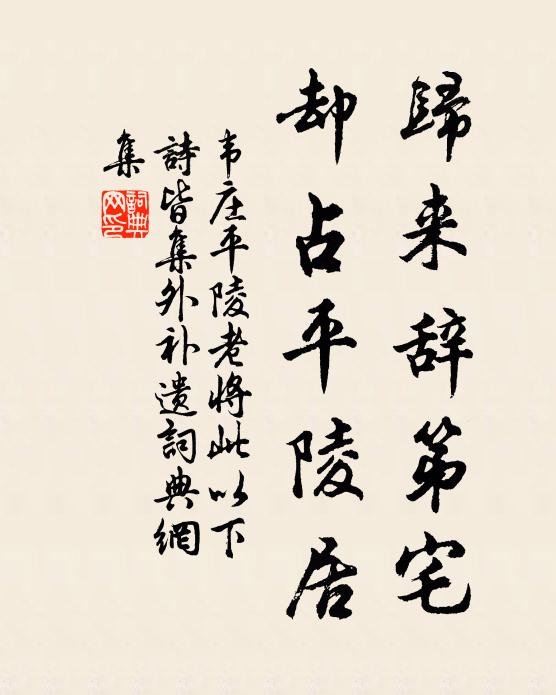 歸来辞第宅
却占平陵居
韦庄平陵老將此以下
詩皆集外补遗詞典網
集
詞典网印